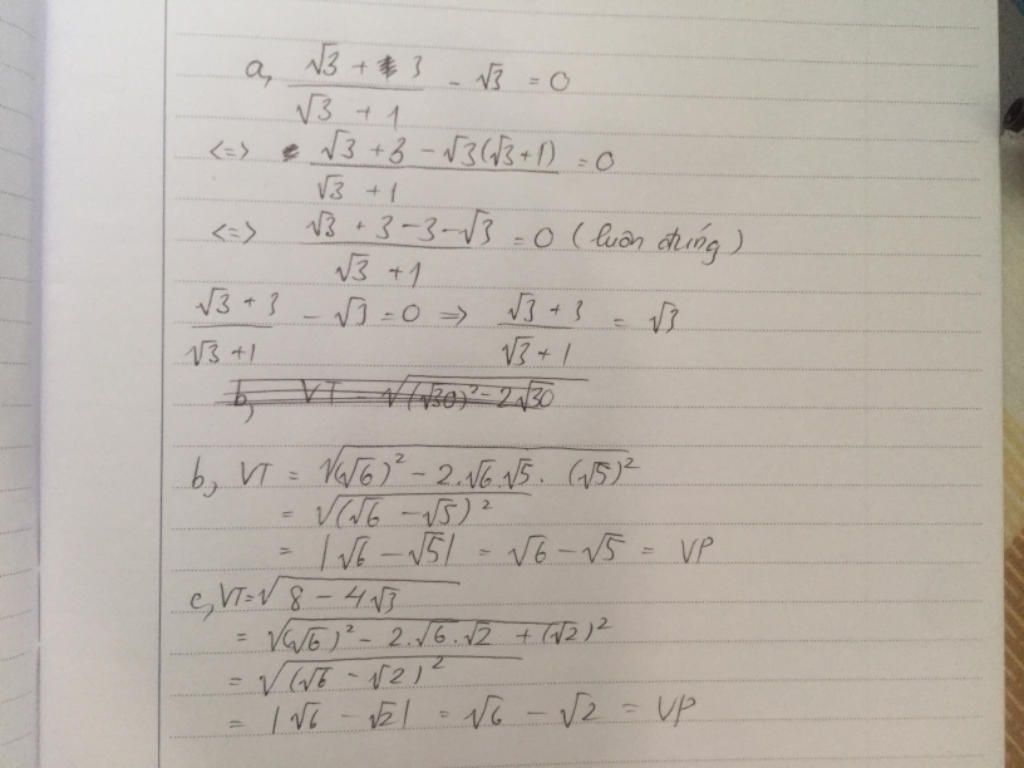 a, (√3 + 3)/(√3 + 1) - √3 = 0
<=> (√3 + 3 - √3(√3+1))/(√3 + 1) = 0
<=> (√3 + 3 - 3 - √3)/(√3 + 1) = 0 (luôn đúng)
(√3 + 3)/(√3 + 1) - √3 = 0 => (√3 + 3)/(√3 + 1) = √3
b, VT = √((√30)² - 2√30
b, VT = √((√6)² - 2.√6.√5. (√5)²
= √(√6 - √5)²
= |√6 - √5| = √6 - √5 = VP
c, VT = √(8 - 4√3)
= √((√6)² - 2.√6.√2 + (√2)²
= √(√6 - √2)²
= |√6 - √2| = √6 - √2 = VP